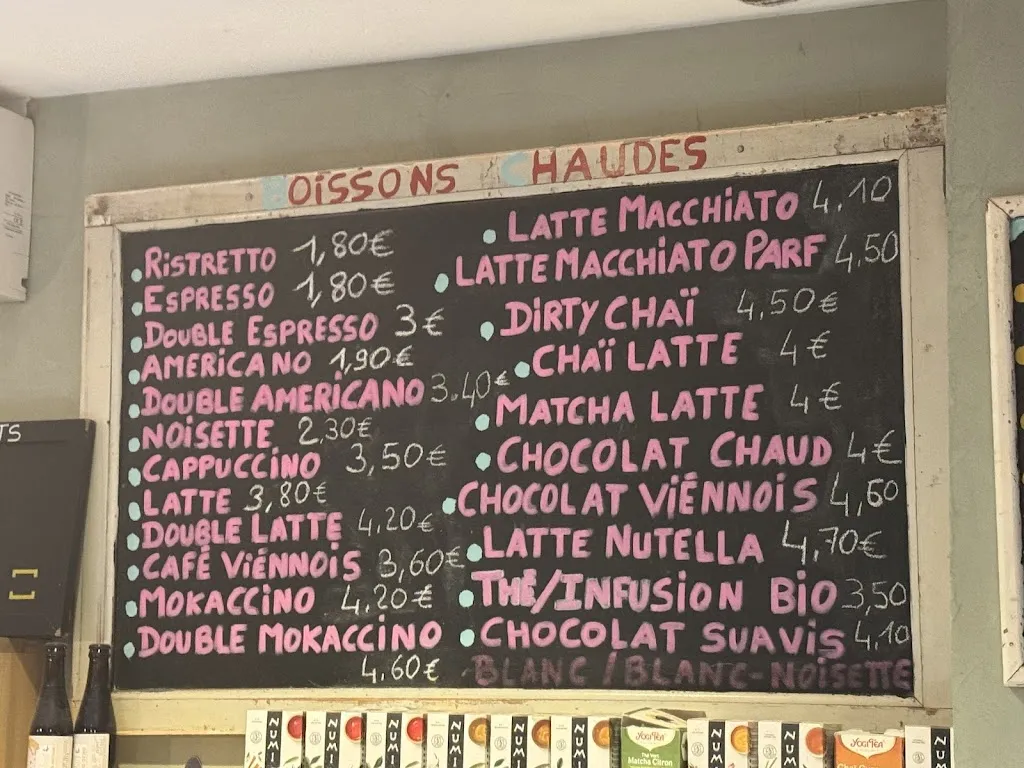 BOISSONS CHAUDES
RISTRETTO 1,80€
ESPRESSO 1,80€
DOUBLE ESPRESSO 3€
AMERICANO 1,90€
DOUBLE AMERICANO 3.40€
NOISETTE 2,30€
CAPPUCCINO 3,50€
LATTE 3,80€
DOUBLE LATTE 4.20€
CAFÉ VIÉNNOIS 3,60€
MOKACCINO 4.20€
DOUBLE MOKACCINO
4.60€
LATTE MACCHIATO 4.10
LATTE MACCHIATO PARF 4.50
DIRTY CHAÏ 4.50€
CHAÏ LATTE 4€
MATCHA LATTE 4€
CHOCOLAT CHAUD 4€
CHOCOLAT VIÉNNOIS 4,60
LATTE NUTELLA 4,70€
THÉ/INFUSION BIO 3,50
CHOCOLAT SUAVIS 4.10
BLANC / BLANC-NOISETTE
TS
NUMI
NUMI
NUMI
NUMI
NUMI
NUMI
YOGI TEA
Matcha Citron
NUMI
NUMI
YOGI TEA
NUM